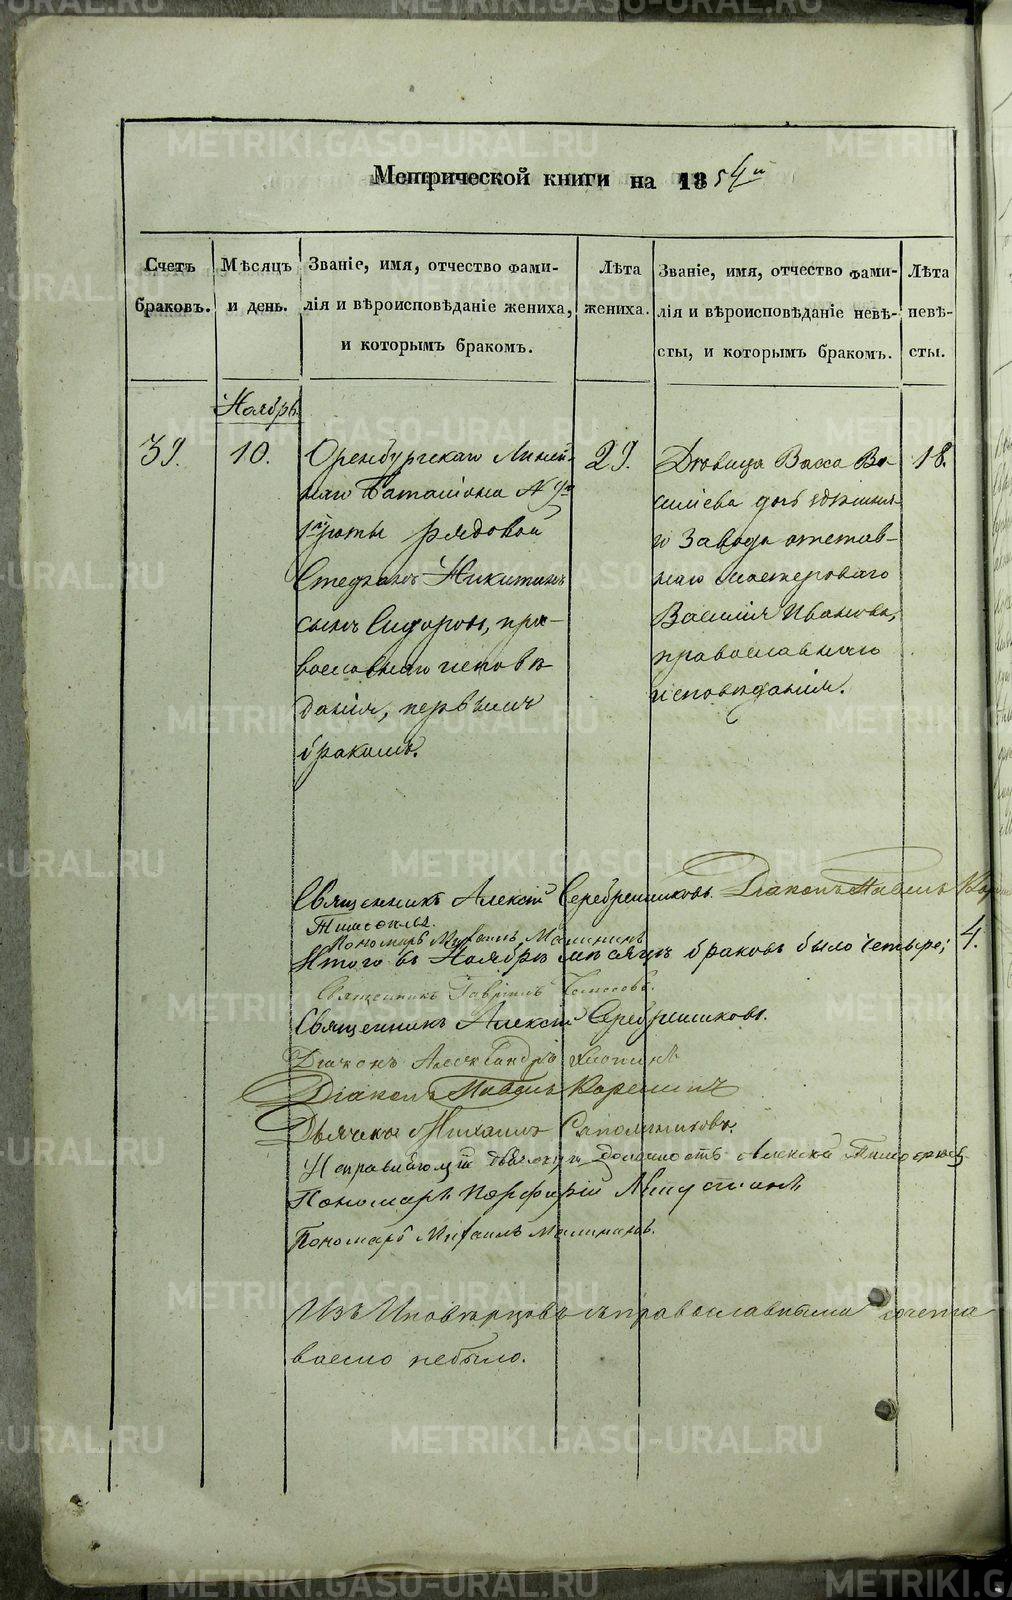 Метрической книги на 1854й
Счетъ браковъ.
Мѣсяцъ и день.
Званіе, имя, отчество фами-
лія и вѣроисповѣданіе жениха,
и которымъ бракомъ.
Лѣта жениха.
Званіе, имя, отчество фами-
лія и вѣроисповѣданіе невѣ-
сты, и которымъ бракомъ.
Лѣта невѣ-
сты.
Ноябрь.
39.
10.
Оренбургскаго Линей-
наго Баталіона №
роты рядовой
Стефанъ Никитинъ
сынъ Сидоровъ, пра-
вославнаго исповѣ-
данія, первымъ
бракомъ.
29.
Дѣвица Васса Ва-
силіева дочь
Завода отстав-
наго мастероваго
Василія Иванова,
православнаго
исповѣданія.
18.
Священникъ Алексій Серебренниковъ. Діаконъ Павелъ
Пономарь Михаилъ Малининъ
Итого въ Ноябрѣ мѣсяцѣ браковъ было четыре; 4.
Священникъ Гавріилъ
Священникъ Алексій Серебренниковъ.
Діаконъ Александръ
Діаконъ Павелъ Корелинъ
Дьячекъ Михаилъ Сапожниковъ.
Исправляющій должность Алексій
Пономарь Порфирій
Пономарь Михаилъ Малининъ.
Изъ Иновѣрцовъ съ православными сочета
ваемо небыло.
METRIKI.GASO-URAL.RU